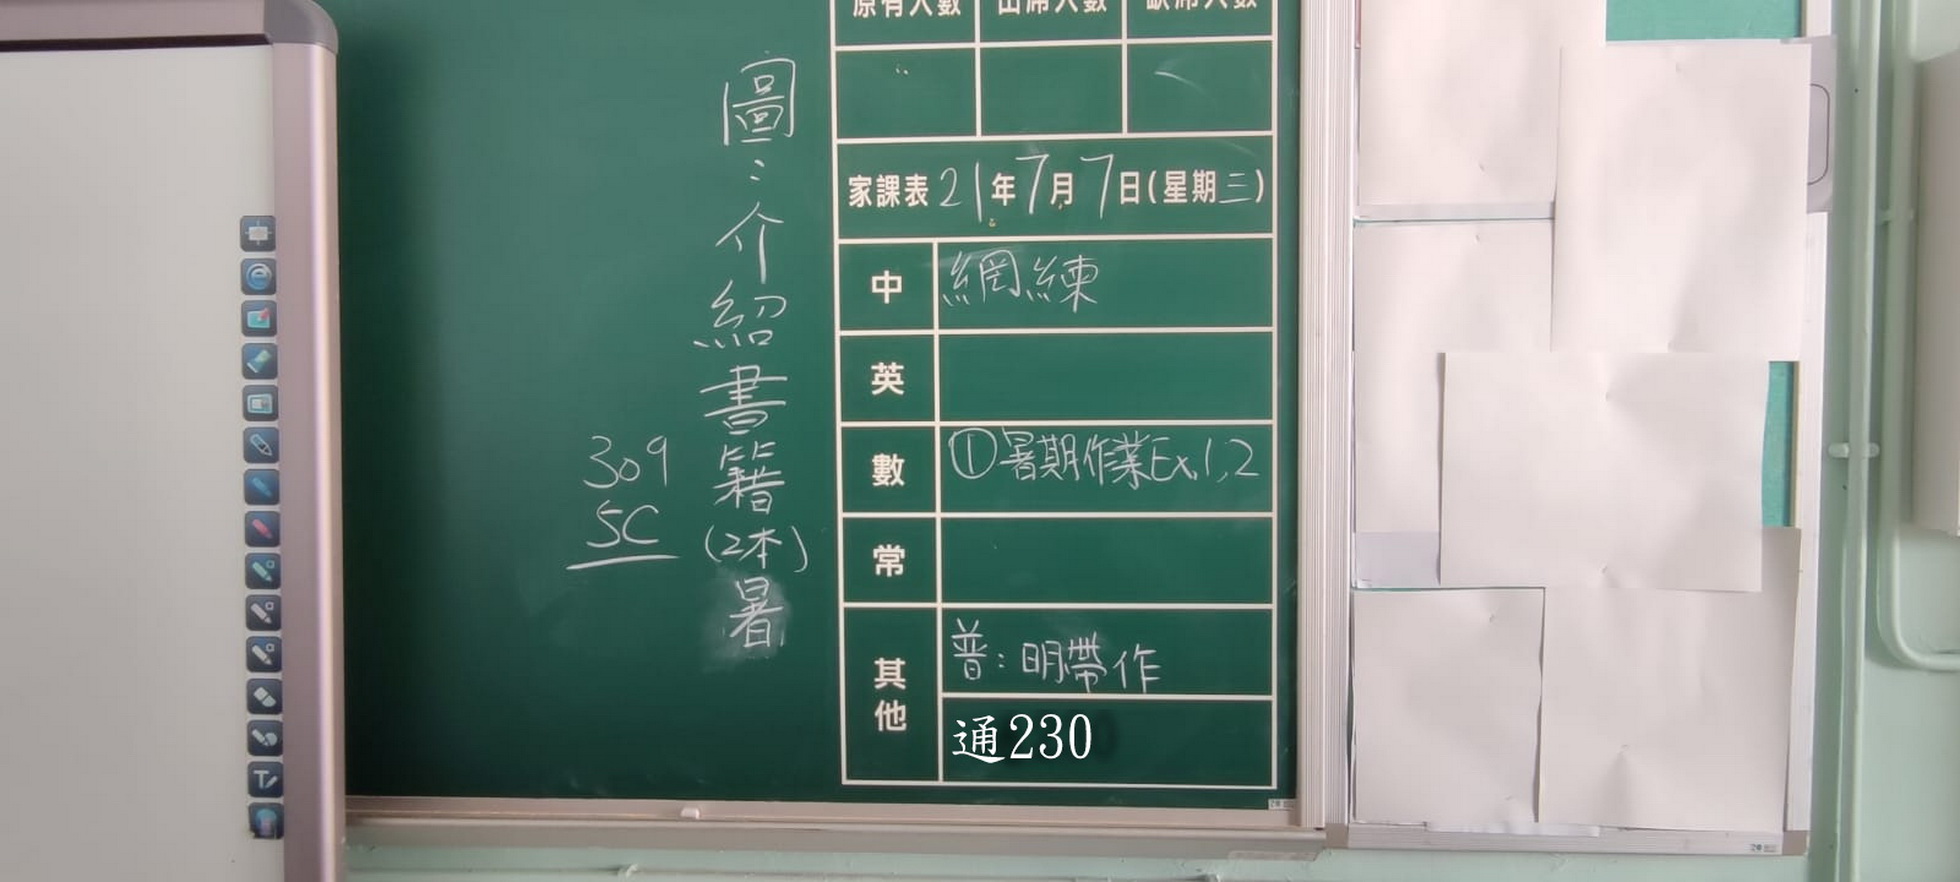 原有人數 出席人數 缺席人數
家課表 21年7月7日(星期三)
中 網練
英
數 ①暑期作業Ex.1,2
常
其他 普：明帶作
通230
圖：介紹書籍(2本)暑
309
5C